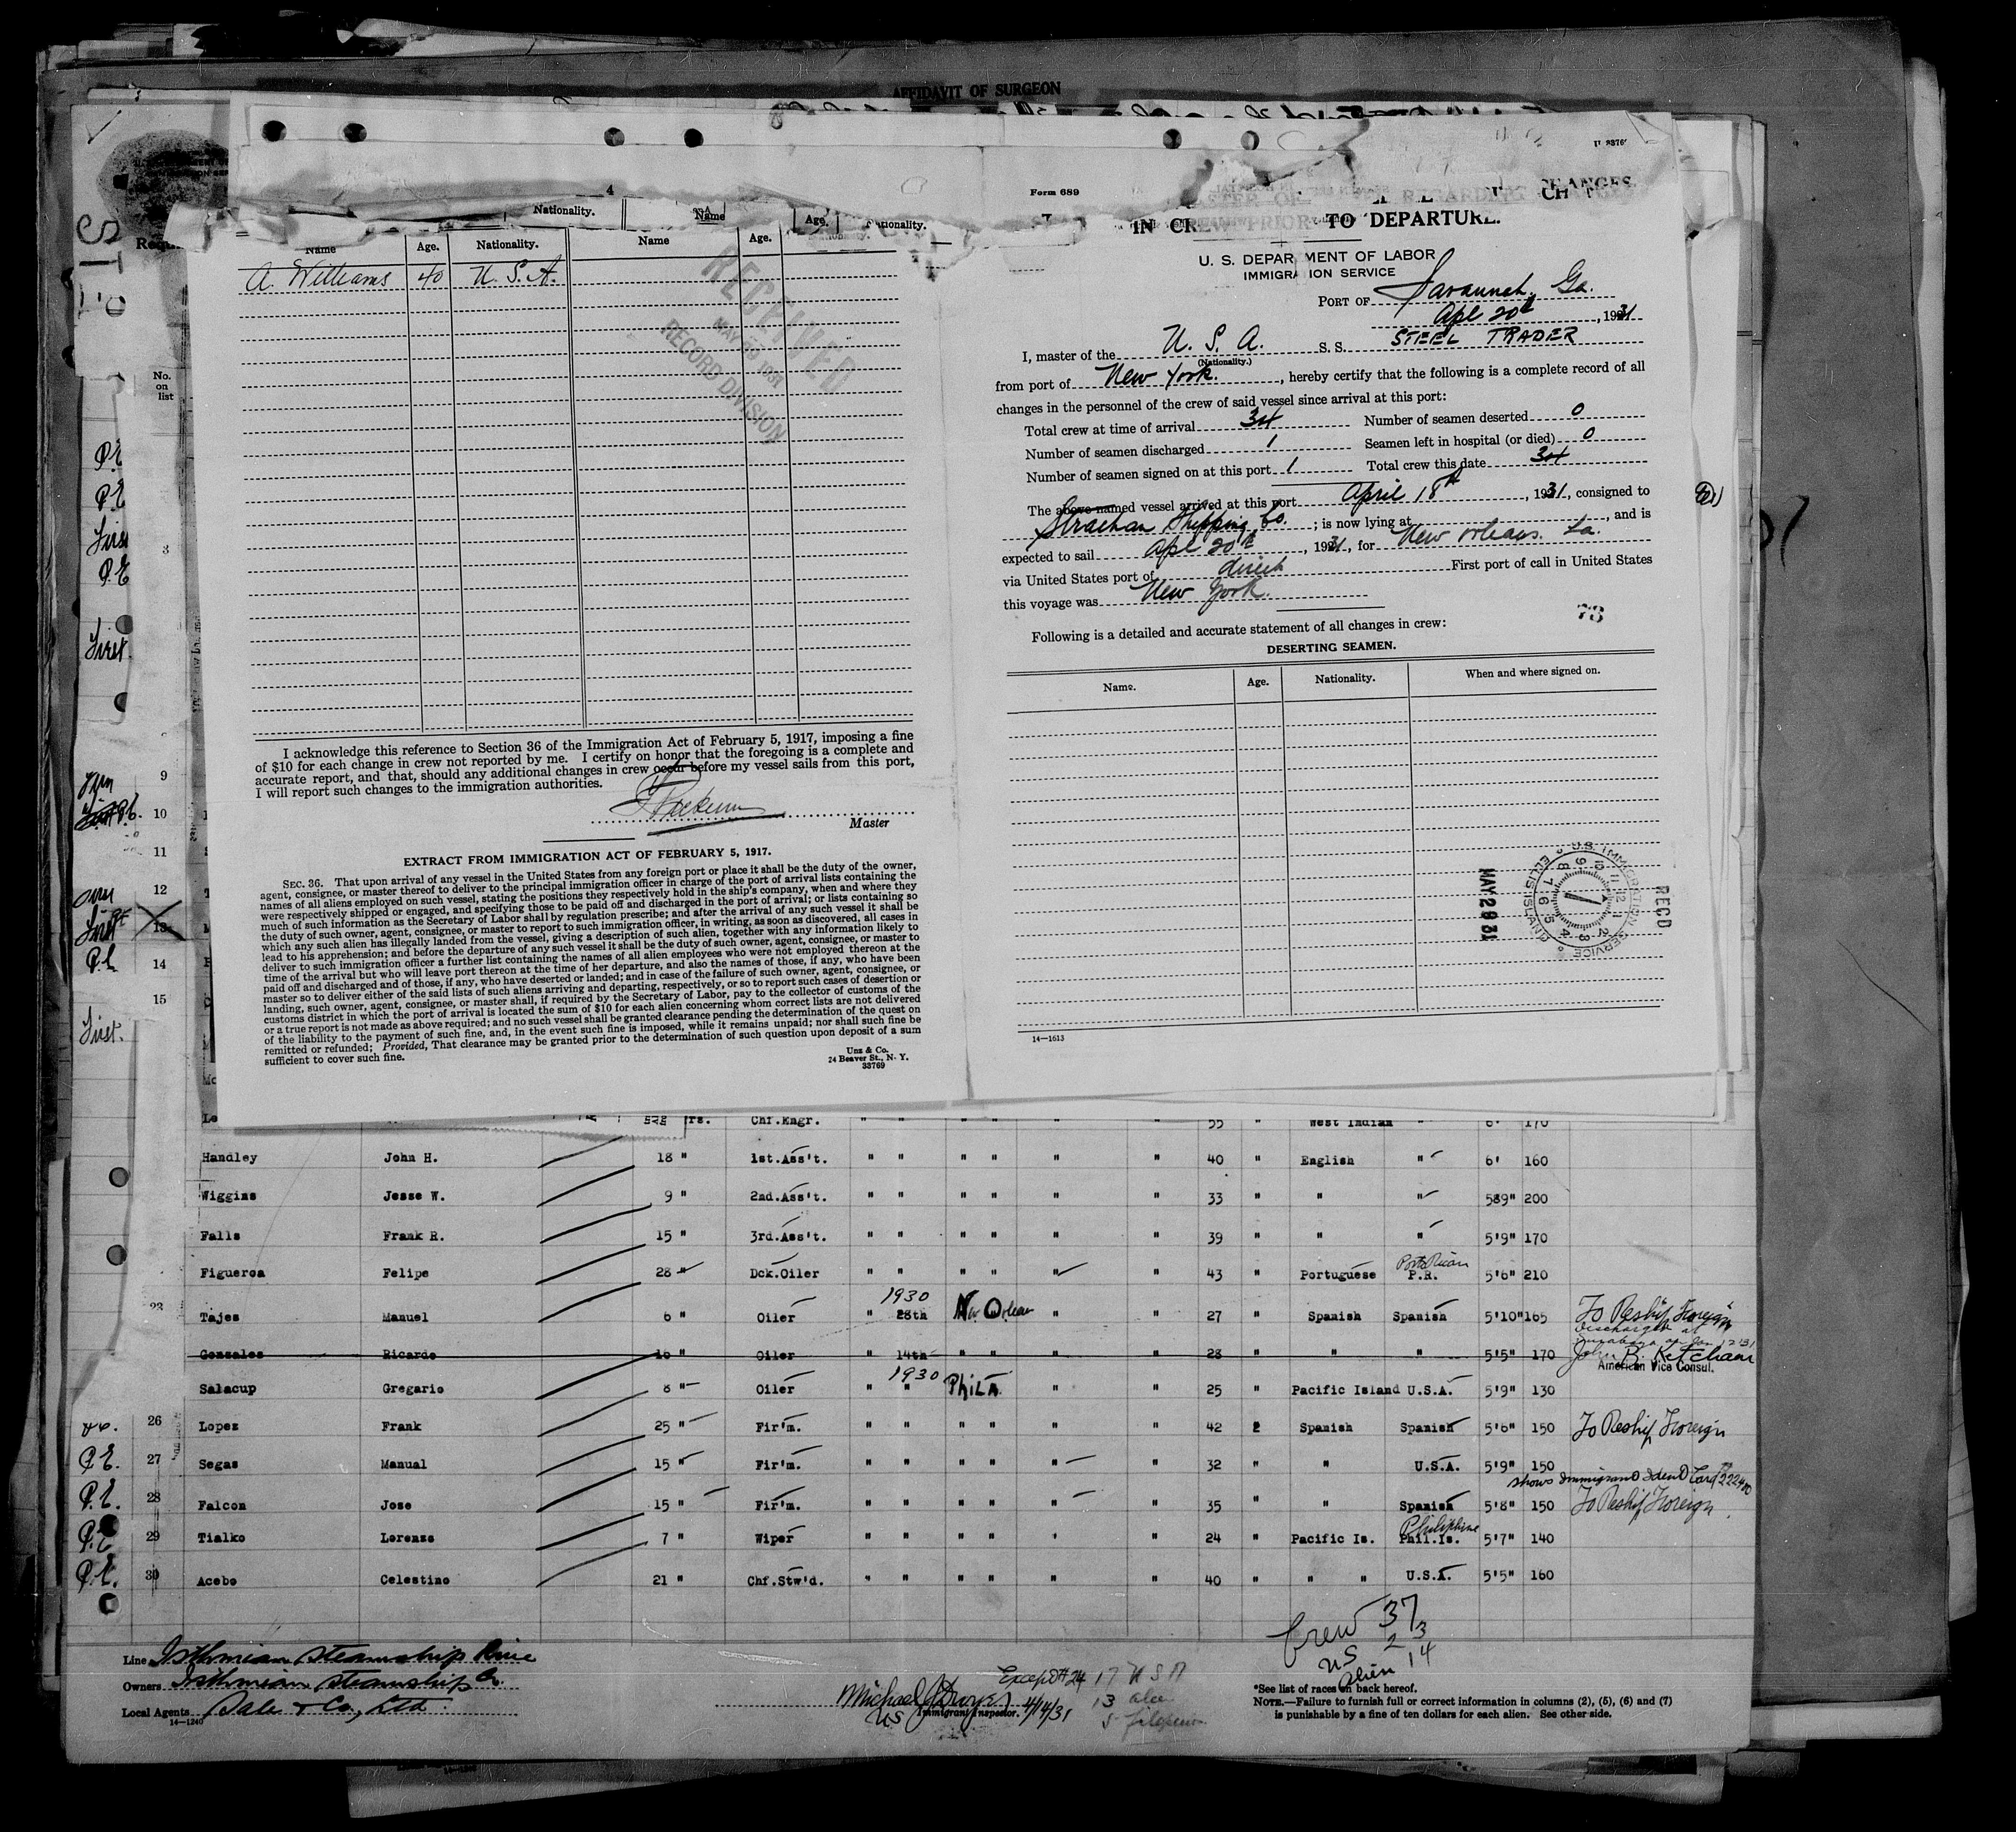 AFFIDAVIT OF SURGEON
4
Name Age. Nationality. Name Age. Nationality.
A. Williams 40 U.S.A.
RECEIVED
MAY 1931
RECORD DIVISION
I acknowledge this reference to Section 36 of the Immigration Act of February 5, 1917, imposing a fine
of $10 for each change in crew not reported by me. I certify on honor that the foregoing is a complete and
accurate report, and that, should any additional changes in crew occur before my vessel sails from this port,
I will report such changes to the immigration authorities.
Master
EXTRACT FROM IMMIGRATION ACT OF FEBRUARY 5, 1917.
SEC. 36. That upon arrival of any vessel in the United States from any foreign port or place it shall be the duty of the owner,
agent, consignee, or master thereof to deliver to the principal immigration officer in charge of the port of arrival lists containing the
names of all aliens employed on such vessel, stating the positions they respectively hold in the ship's company, when and where they
were respectively shipped or engaged, and specifying those to be paid off and discharged in the port of arrival; or lists containing so
much of such information as the Secretary of Labor shall by regulation prescribe; and after the arrival of any such vessel it shall be
the duty of such owner, agent, consignee, or master to report to such immigration officer, in writing, as soon as discovered, all cases in
which any such alien has illegally landed from the vessel, giving a description of such alien, together with any information likely to
lead to his apprehension; and before the departure of any such vessel it shall be the duty of such owner, agent, consignee, or master to
deliver to such immigration officer a further list containing the names of all alien employees who were not employed thereon at the
time of the arrival but who will leave port thereon at the time of her departure, and also the names of those, if any, who have been
paid off and discharged and of those, if any, who have deserted or landed; and in case of the failure of such owner, agent, consignee, or
master so to deliver either of the said lists of such aliens arriving and departing, respectively, or so to report such cases of desertion or
landing, such owner, agent, consignee, or master shall, if required by the Secretary of Labor, pay to the collector of customs of the
customs district in which the port of arrival is located the sum of $10 for each alien concerning whom correct lists are not delivered
or a true report is not made as above required; and no such vessel shall be granted clearance pending the determination of the quest on
of the liability to the payment of such fine, and, in the event such fine is imposed, while it remains unpaid; nor shall such fine be
remitted or refunded; Provided, That clearance may be granted prior to the determination of such question upon deposit of a sum
sufficient to cover such fine.
Unz & Co.
24 Beaver St., N. Y.
33769
Form 689
TO DEPARTURE.
U. S. DEPARTMENT OF LABOR
IMMIGRATION SERVICE
PORT OF Savannah, Ga.
Apl 20th, 1931
I, master of the U. S. A. S. S. STEEL TRADER
(Nationality.)
from port of New York., hereby certify that the following is a complete record of all
changes in the personnel of the crew of said vessel since arrival at this port:
Total crew at time of arrival 34 Number of seamen deserted 0
Number of seamen discharged 1 Seamen left in hospital (or died) 0
Number of seamen signed on at this port 1 Total crew this date 34
The above-named vessel arrived at this port April 18th, 1931, consigned to
Strachan Shipping Co.; is now lying at , and is
expected to sail Apl 20th, 1931, for New Orleans. La.
via United States port of direct First port of call in United States
this voyage was New York.
73
Following is a detailed and accurate statement of all changes in crew:
DESERTING SEAMEN.
Name. Age. Nationality. When and where signed on.
REC'D
U.S. IMMIGRATION SERVICE
ELLIS ISLAND
MAY 29 31
14—1613
No.
on
list
3
9
10
11
12
13
14
15
Chf.Engr. " " " " " " 55 " West Indian " 6' 170
Handley John H. 18 " 1st.Ass't. " " " " " " 40 " English " 6' 160
Wiggins Jesse W. 9 " 2nd.Ass't. " " " " " " 33 " " " 589" 200
Falls Frank R. 15 " 3rd.Ass't. " " " " " " 39 " " " 5'9" 170
Figueroa Felipe 28 Dck.Oiler " " " " " " 43 " Portuguese Porto Rican P.R. 5'6" 210
23 Tajes Manuel 6 " Oiler " 28th 1930 New Orleans " " 27 " Spanish Spanish 5'10" 165 To Reship Foreign
Gonzales Ricardo 10 " Oiler " 14th " " " " 28 " " " 5'5" 170 John B. Ketcham
American Vice Consul.
Salacup Gregario 8 " Oiler " " 1930 Phila " " 25 " Pacific Island U.S.A. 5'9" 130
26 Lopez Frank 25 " Fir'm. " " " " " " 42 2 Spanish Spanish 5'6" 150 To Reship Foreign
P.E. 27 Segas Manual 15 " Fir'm. " " " " " " 32 " " U.S.A. 5'9" 150
shows Immigrant Ident Card
P.E. 28 Falcon Jose 15 " Fir'm. " " " " " " 35 " " Spanish 5'8" 150 To Reship Foreign
P.E. 29 Tialko Lorenzo 7 " Wiper " " " " ' " 24 " Pacific Is. Philippine Phil.Is. 5'7" 140
P.E. 30 Acebo Celestino 21 " Chf.Stw'd. " " " " " " 40 " " " U.S.A. 5'5" 160
Crew 37
US 23
Alien 14
Line Isthmian Steamship Line
Owners Isthmian Steamship Co.
Local Agents Dale & Co., Ltd.
14—1240
Except #24 17 USA
Michael J Dwyer 13 alien
US Immigrant Inspector. 4/14/31
5 filipino
*See list of races on back hereof.
NOTE.—Failure to furnish full or correct information in columns (2), (5), (6) and (7)
is punishable by a fine of ten dollars for each alien. See other side.